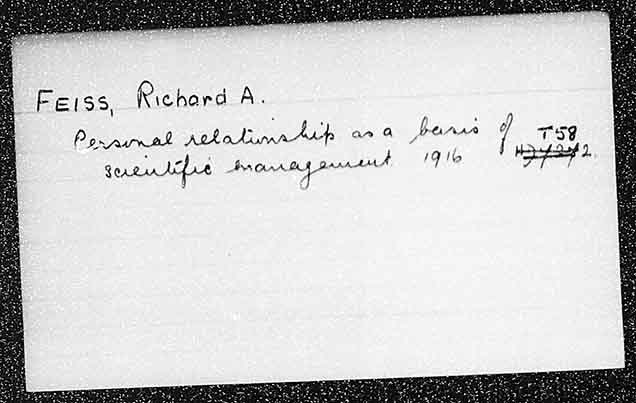 FEISS, Richard A.
Personal relationship as a basis of T58
scientific management 1916